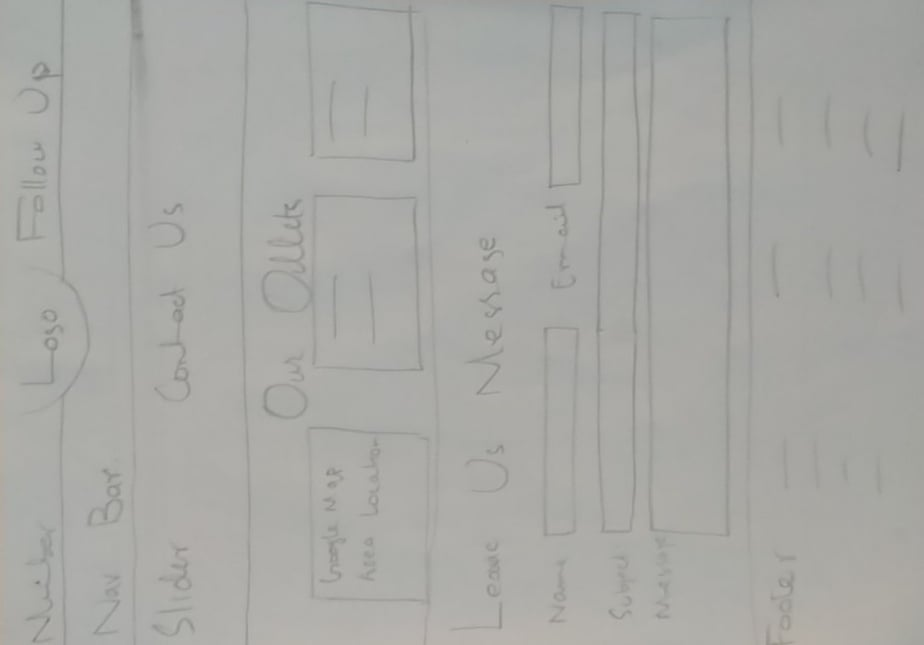 Number Logo Follow Up
Nav Bar
Slider Contact Us
Our Outlets
Google Map
Area Location
Leave Us Message
Name Email
Subject
Message
Footer